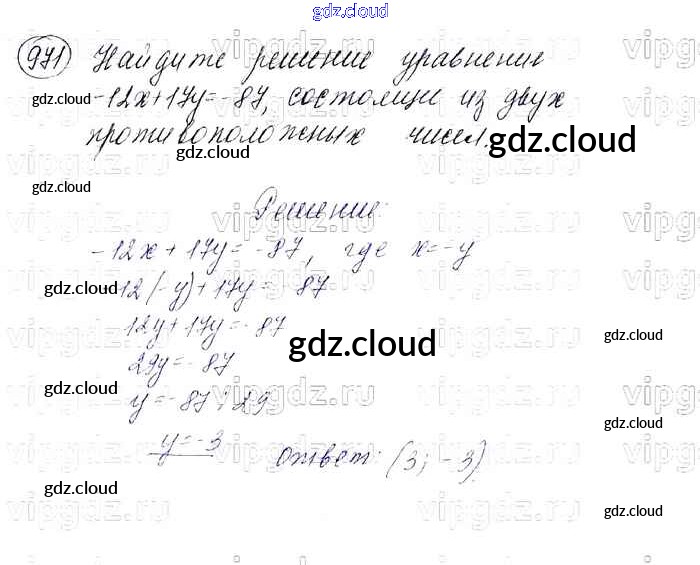 gdz.cloud
971 Найдите решение уравнение
gdz.cloud -12x+17y=-87, состоящие из двух
противоположных чисел. gdz.cloud
gdz.cloud
gdz.cloud
Решение:
-12x + 17y = -87, где x=-y
gdz.cloud 12(-y)+17y = 87
12y+17y=-87
gdz.cloud
gdz.cloud
29y=-87
gdz.cloud
y=-87:29
gdz.cloud
y=-3 Ответ: (3; -3)
gdz.cloud
gdz.cloud